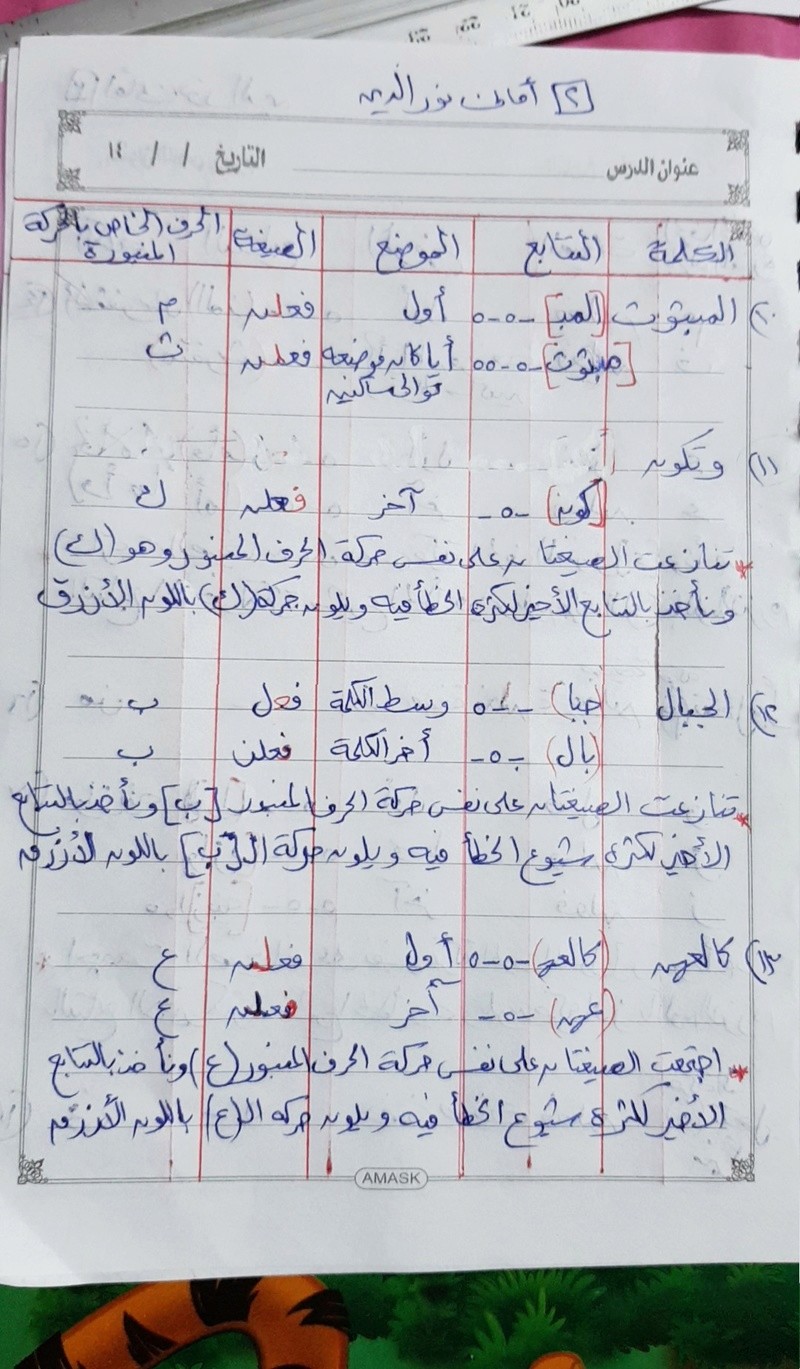 [٢] أماني نور الدين
عنوان الدرس التاريخ / / ١٤
الكلمة التتابع الموضع الصيغة الحرف الخاص بالحركة المنبورة
١٠) المبثوث [المبـ] -٥-٥ أول فعلن م
[مبثوث] -٥-٥٥ أيا كان موضعه فعلن ث
توالي ساكنين
١١) وتكون
[كون] -٥- آخر فعلن ك
* تنازعت الصيغتان على نفس حركة الحرف المنبور وهو (ك)
ونأخذ بالتتابع الأخير لكثرة الخطأ فيه ويلون حركة (ك) باللون الأزرق
١٢) الجبال (جبا) --٥ وسط الكلمة فعل ب
(بال) -٥- أخر الكلمة فعلن ب
* تنازعت الصيغتان على نفس حركة الحرف المنبور [ب] ونأخذ بالتتابع
الأخير لكثرة شيوع الخطأ فيه ويلون حركة الـ [ب] باللون الأزرق
١٣) كالعهن (كالعهـ) -٥-٥ أول فعلن ع
(عهن) -٥- آخر فعلن ع
* اجتمعت الصيغتان على نفس حركة الحرف المنبور (ع) ونأخذ بالتتابع
الأخير لكثرة شيوع الخطأ فيه ويلون حركه الـ (ع) باللون الأزرق
AMASK